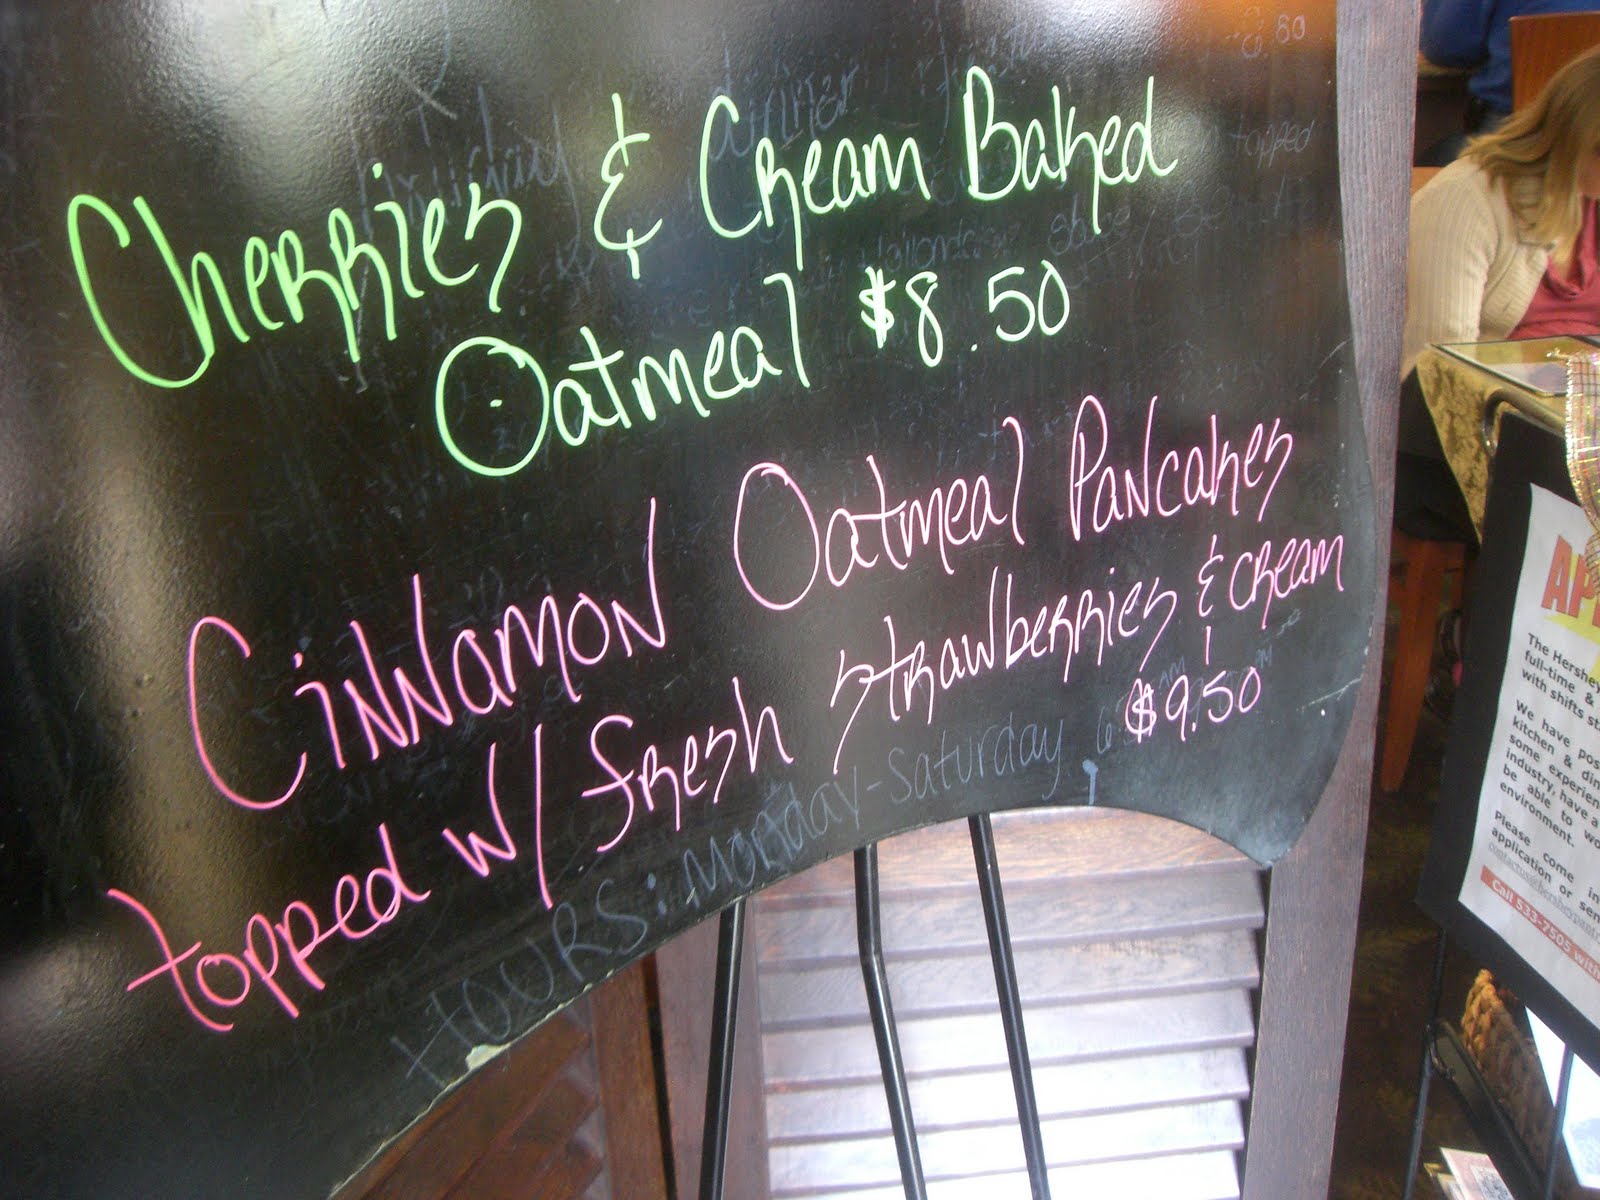 Cherries & Cream Baked
Oatmeal $8.50
Cinnamon Oatmeal Pancakes
topped w/ fresh strawberries & cream
$9.50
HOURS: Monday-Saturday
The Hershey
full-time &
with shifts
We have
kitchen &
some
industry, have a
be able to
environment.
Please come in
application or
Call 533-7505 with